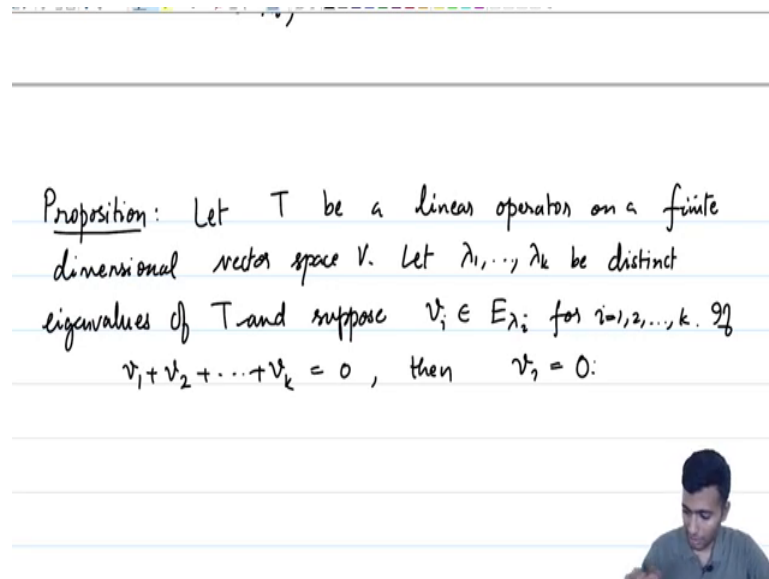 Proposition: Let T be a linear operator on a finite
dimensional vector space V. Let λ₁,..., λₖ be distinct
eigenvalues of T and suppose vᵢ ∈ E_λᵢ for i=1,2,...,k. If
v₁+v₂+...+vₖ = 0, then vᵢ = 0.